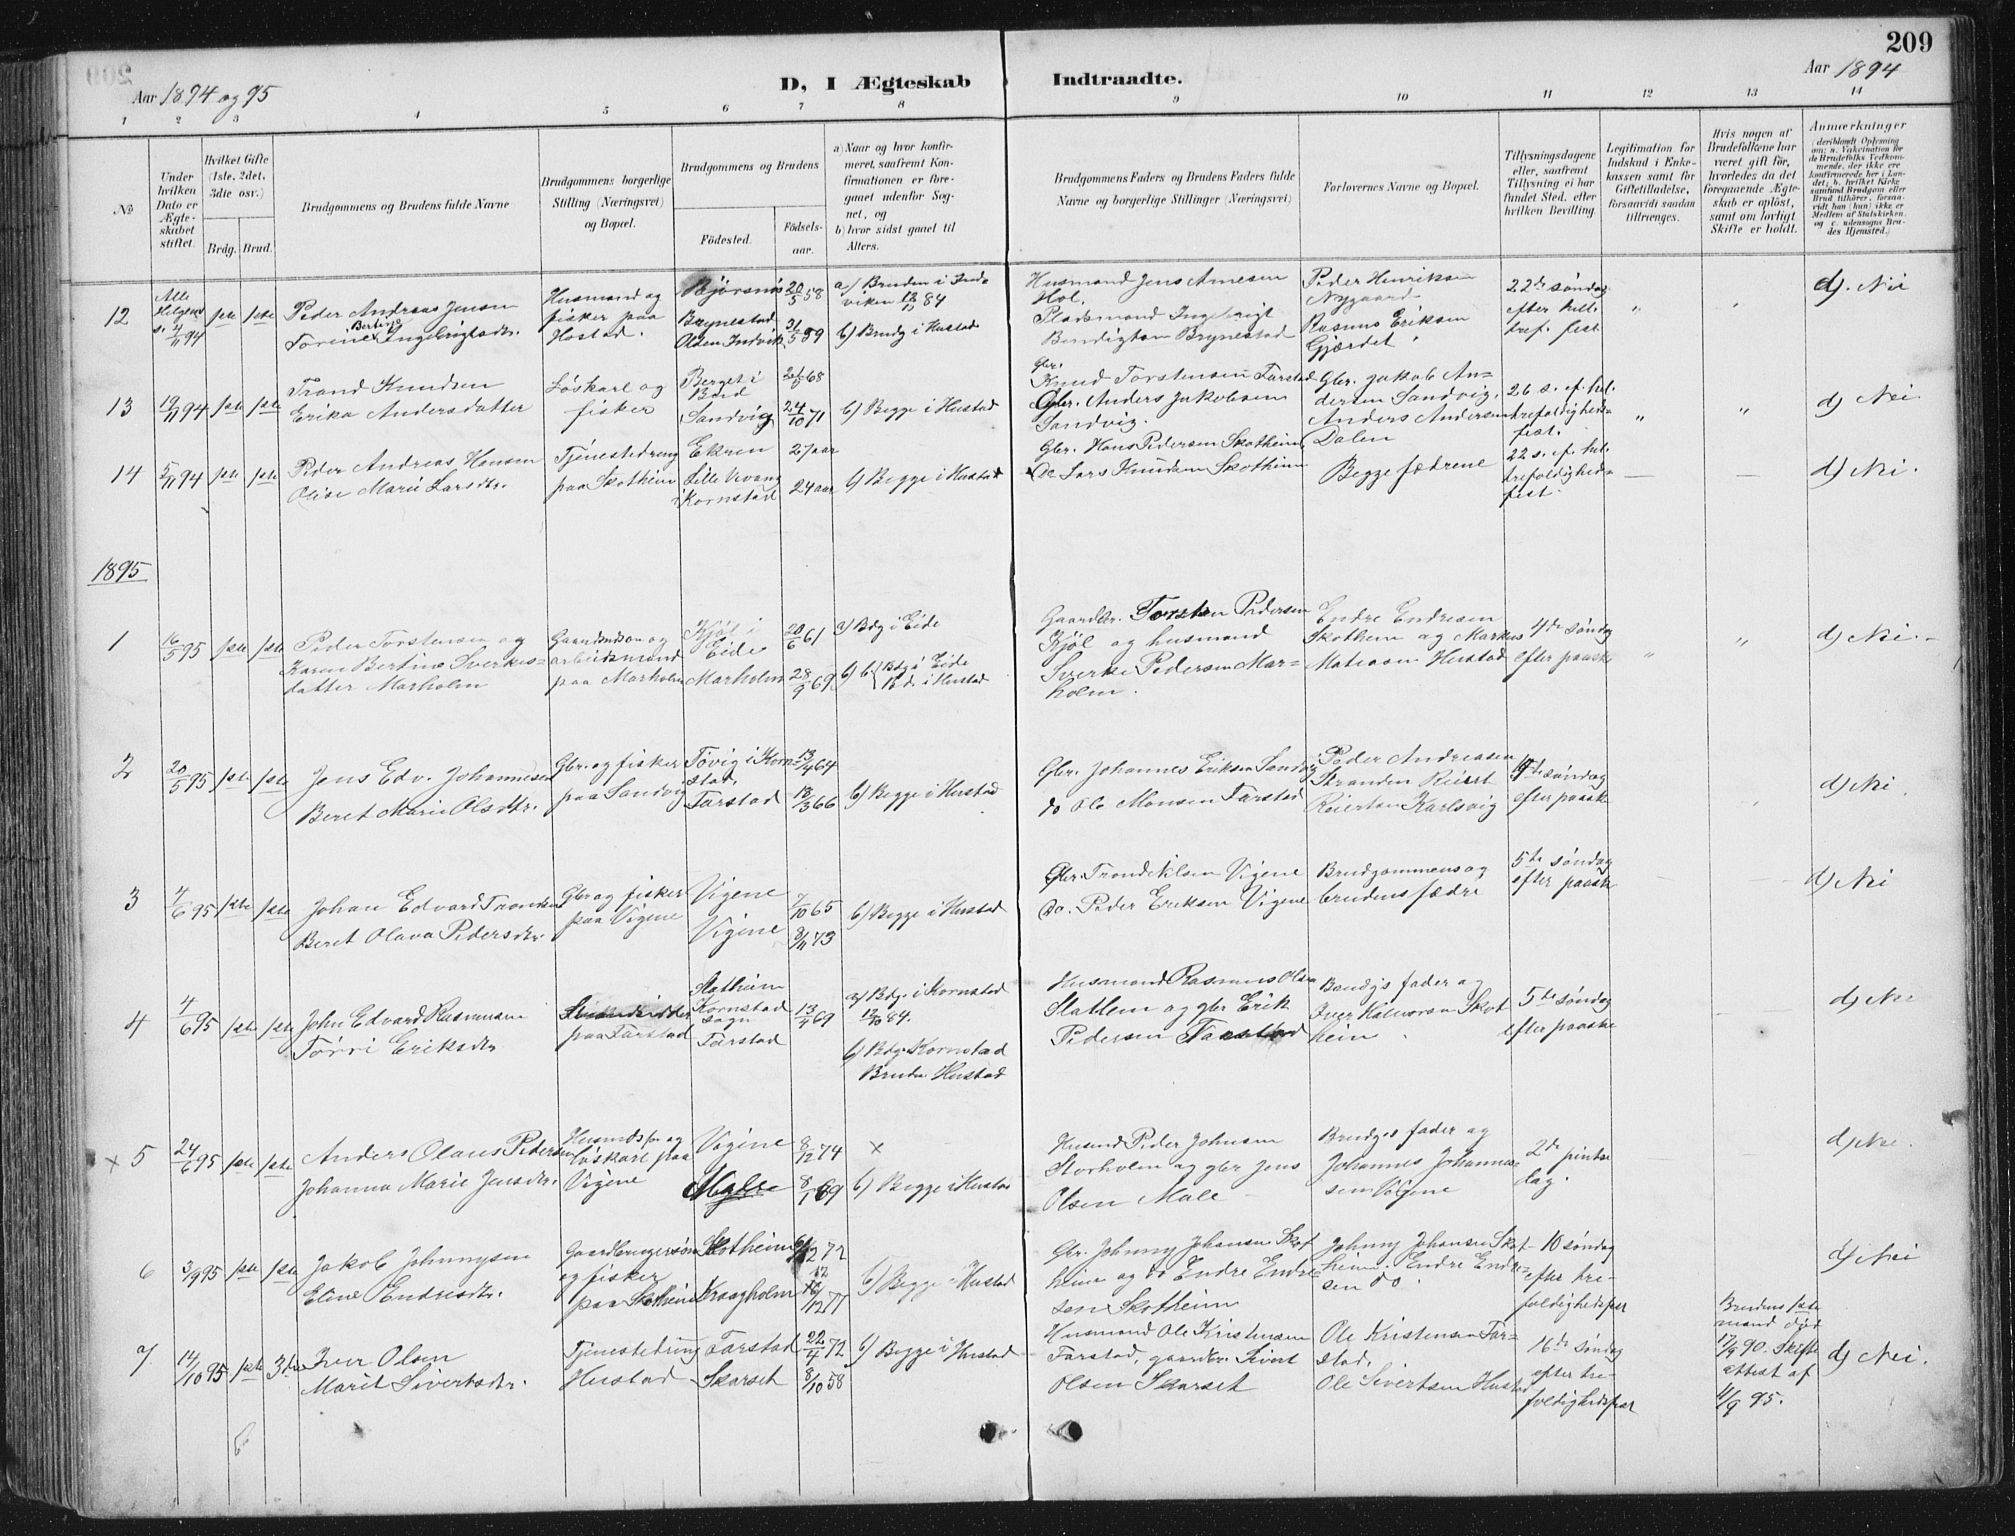 209
Aar 1894 og 95
D, I Ægteskab Indtraadte.
Aar 1894
1 2 3 4 5 6 7 8 9 10 11 12 13 14
№
Under hvilken Dato er Ægteskabet stiftet.
Hvilket Gifte (1ste, 2det, 3die osv.)
Brdg. Brud.
Brudgommens og Brudens fulde Navne
Brudgommens borgerlige Stilling (Næringsvei) og Bopæl.
Brudgommens og Brudens
Födested.
Födselsaar.
a) Naar og hvor konfirmeret, saafremt Konfirmationen er foregaaet udenfor Sognet, og
b) hvor sidst gaaet til Alters.
Brudgommens Faders og Brudens Faders fulde Navne og borgerlige Stillinger (Næringsvei)
Forlovernes Navne og Bopæl.
Tillysningsdagene eller, saafremt Tillysning ei har fundet Sted, efter hvilken Bevilling.
Legitimation for Indskud i Enkekassen samt for Giftetilladelse, forsaavidt saadan tiltrænges.
Hvis nogen af Brudefolkene har været gift för, hvorledes da det foregaaende Ægteskab er oplöst, samt om lovligt Skifte er holdt.
Anmærkninger
12
Alle Helgens 4/11 94
1ste 1ste
Peder Andreas Jensen
Torine Bertine Ingebrigtsdtr.
Husmand og fisker paa Hostad.
Bjørsnøs 20/5 58
Brynestad Olsen Indvik 31/5 59
a) Bruden i Indviken 12/10 84
b) Brudg i Hustad
Husmand Jens Arnesen Hol.
Pladsmand Ingebrigt Bendigtsen Brynestad
Peder Henriksen Nygaard
Rasmus Eriksen Gjærdet
22de søndag efter hel. tref. fest
d). Nei
13
19/11 94
1ste 1ste
Trond Knudsen
Erika Andersdatter
Løskarl og fisker
Berget i Bud 68
Sandvig 24/10 71
b) Begge i Hustad
Gbr. Knud Torstensen Tarstad
Gbr. Anders Jakobsen Sandvig.
Gbr. Jakob Andersen Sandvig.
Anders Andersen Dalen
26 s. ef. hel. trefoldigheds fest.
d) Nei.
14
5/11 94
1ste 1ste
Peder Andreas Hansen
Oline Marie Larsdtr.
Tjenestedreng paa Skotheim
Ekren 27 aar
Lille Vevang i Kornstad 24 aar
b) Begge i Hustad
Gbr. Hans Pedersen Skotheim
Do Lars Knudsen Skotheim
Begge fædrene
22 s. ef. hel. trefoldigheds fest.
d) Nei.
1895
1
16/5 95
1ste 1ste
Peder Torstensen og
Karen Bertine Sverkesdatter Marholm
Gaardmdsøn og arbeidsmand paa Marholm
Kjøl i Eide 20/6 61
Marholm 28/9 69
a) Bdg i Eide
b) Bdg i Eide
Bd. i Hustad
Gaardbr. Torsten Pedersen Kjøl og husmand
Sverke Pedersen Marholm.
Endre Endresen Skothem og Markus Mathiasen Hustad
4de søndag efter paaske
d) Nei.
2
20/5 95
1ste 1ste
Jens Edv. Johannesen
Beret Marie Olsdtr.
Gbr. og fisker paa Sandvig
Tøvig i Kornstad 13/4 64
Tarstad 18/3 66
b) Begge i Hustad
Gbr. Johannes Eriksen Sandvig
do Ole Monsen Tarstad
Peder Andreasen Stranden
Reiert Reiertsen Karlsvig
4de søndag efter paaske
d) Nei.
3
4/6 95
1ste 1ste
Johan Edvard Tronsen
Beret Olava Pedersdtr.
Gbr og fisker paa Vigene
Vigene 7/10 65
Vigene 8/11 73
b) Begge i Hustad
Gbr. Trond Nilsen Vigene
do. Peder Eriksen Vigene
Brudgommens og brudens fædre
5te søndag efter paaske
d) Nei
4
4/6 95
1ste 1ste
John Edvard Rasmussen
Torri Eriksdtr
paa Tarstad
Statheim Kornstad sogn 13/4 69
Tarstad
a) Bdg. i Kornstad 12/10 84.
b) Bdg. Kornstad
Bruden Hustad
Husmand Rasmus Olsen Statlem og gbr Erik Pedersen Tarstad
Brudg's fader og Iver Halvorsen Skotheim.
5te søndag efter paaske
d) Nei
× 5
24/6 95
1ste 1ste
Anders Olaus Pedersen
Johanna Marie Jensdtr.
Husmdsøn og løskarl paa Vigene
Vigene 8/12 74
Male 8/1 69
×
b) Begge i Hustad
Husmd Peder Johnsen Storholm og gbr Jens Olsen Male
Brudgs fader og Johannes Johannessen Vigene
2de pintsedag.
d) Nei.
6
3/9 95
1ste 1ste
Jakob Johnnysen
Eline Endresdtr.
Gaardbrugersøn og fisker paa Skotheim
Skotheim 12 72
Kraagholm 12 77
b) Begge i Hustad
Gbr. Johnny Johansen Skotheim og do Endre Endresen Skotheim
Johnny Johansen Skotheim. Endre Endresen do.
10 søndag efter trefoldighedsfest
d) Nei
7
14/10 95
1ste 3die
Iver Olsen
Marit Sivertsdtr.
Tjenestedreng Hustad
Tarstad 22/4 72
Skarset 8/10 58
b) Begge i Hustad
Husmand Ole Kristensen Tarstad, gaardbr. Sivert Olsen Skarset
Ole Kristensen Tarstad.
Ole Sivertsen Hustad
16de søndag efter trefoldighedsfest
Brudens 1ste mand død 17/9 90. Skifteattest af 4/9 95.
d) Nei.